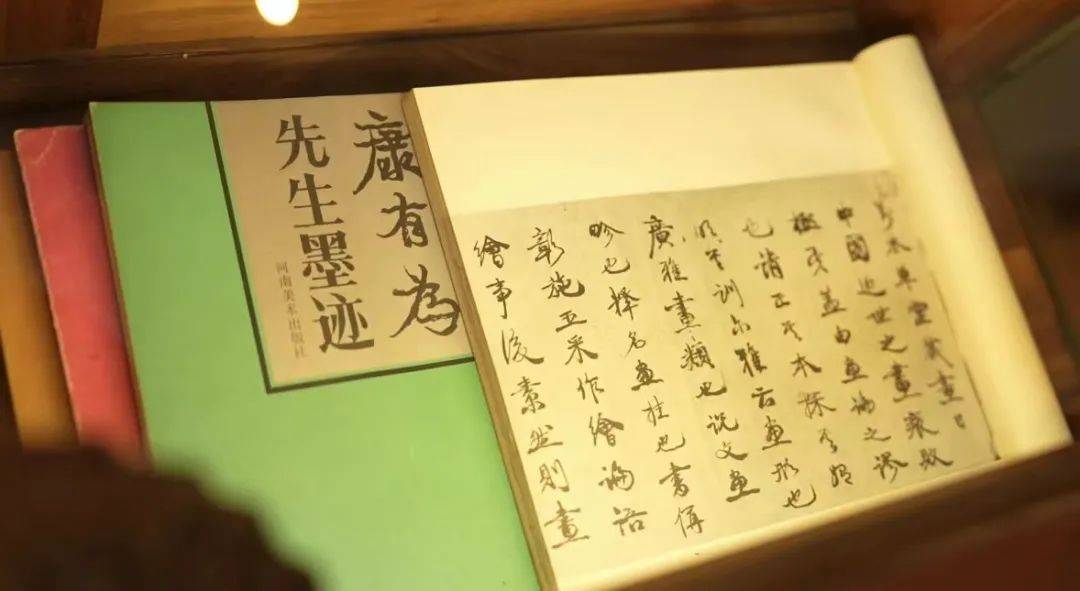 康有為
先生墨迹
河南美术出版社
萬木草堂藏畫目
中國近世之畫衰敗
極矣蓋由畫論之謬
也請正其本探其始
明其訓尔雅云畫形也
廣雅畫類也説文畫
畛也釋名畫挂也書偁
彰施五采作繪論語
繪事後素然則畫